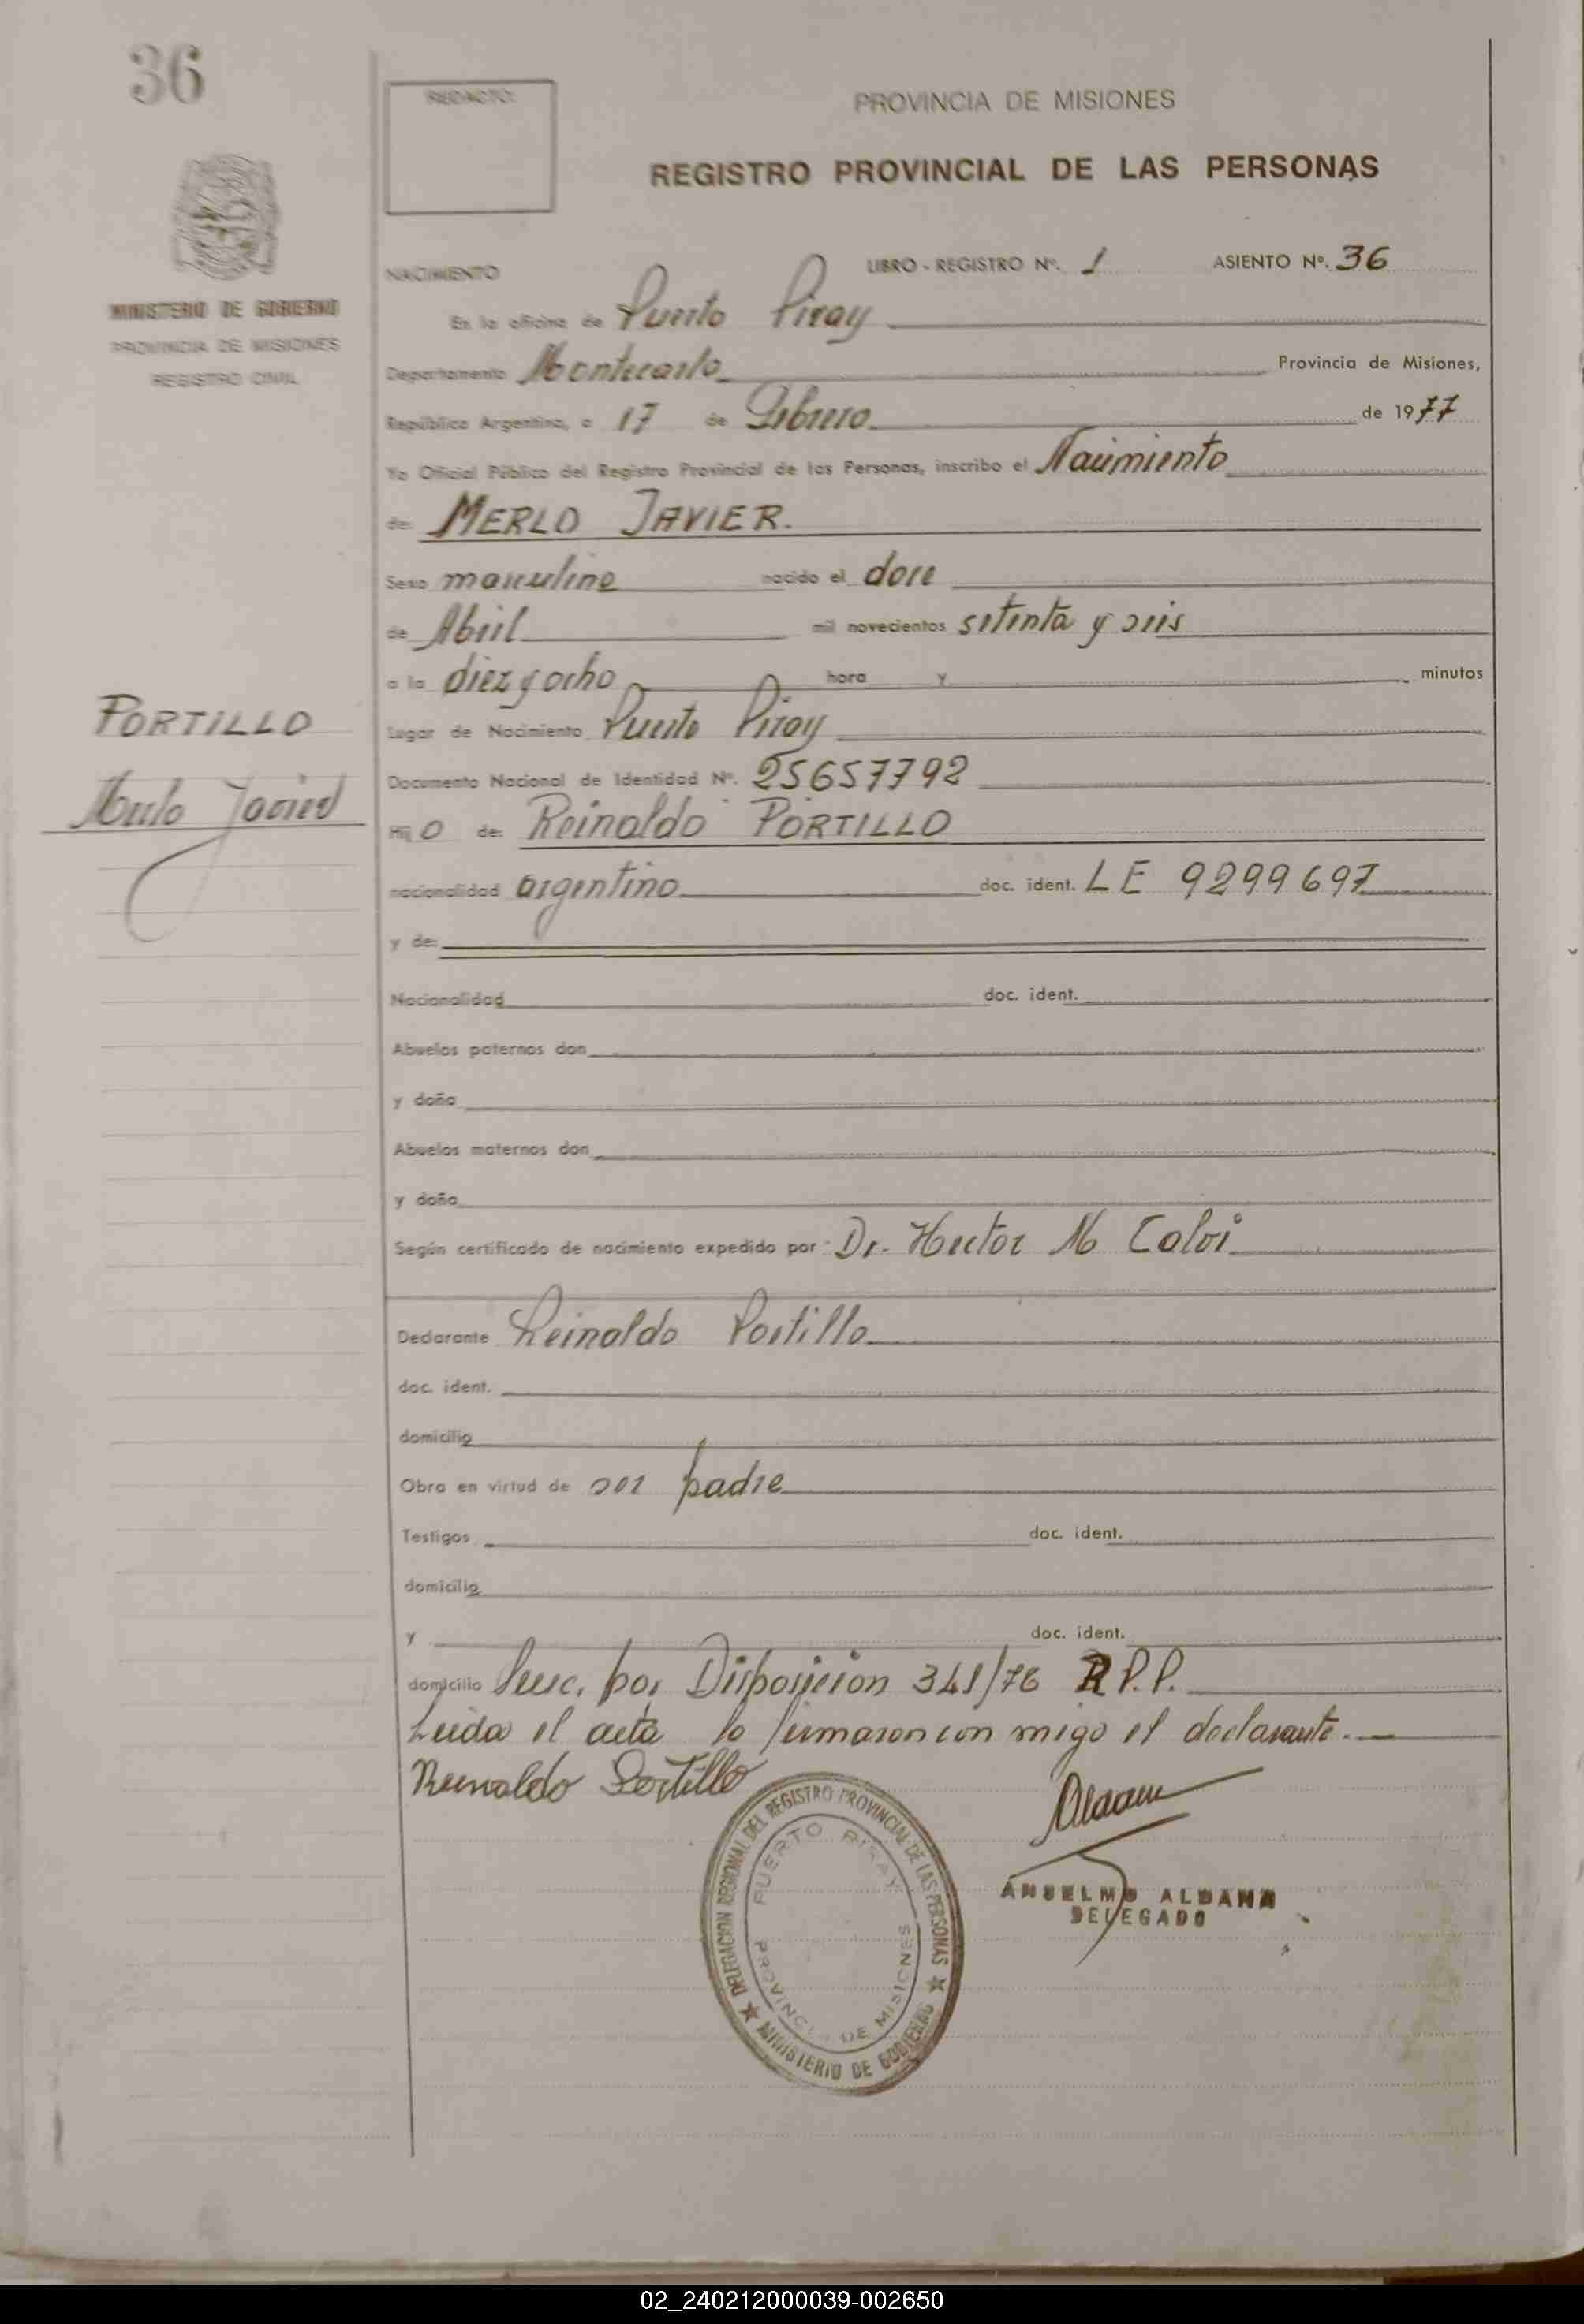 36
REDACTO:
PROVINCIA DE MISIONES
REGISTRO PROVINCIAL DE LAS PERSONAS
MINISTERIO DE GOBIERNO
PROVINCIA DE MISIONES
REGISTRO CIVIL
NACIMIENTO LIBRO - REGISTRO Nº. 1 ASIENTO Nº. 36
En la oficina de Puerto Piray
Departamento Montecarlo Provincia de Misiones,
República Argentina, a 17 de Febrero de 1977
Yo Oficial Público del Registro Provincial de las Personas, inscribo el Nacimiento
de: MERLO JAVIER.
Sexo masculino nacido el doce
de Abril mil novecientos setenta y seis
a la diez y ocho hora y minutos
Lugar de Nacimiento Puerto Piray
Documento Nacional de Identidad Nº. 25657792
PORTILLO
Merlo Javier
Hij o de: Reinaldo PORTILLO
nacionalidad argentino doc. ident. LE 9299697
y de:
Nacionalidad doc. ident.
Abuelos paternos don
y doña
Abuelos maternos don
y doña
Según certificado de nacimiento expedido por: Dr. Hector M Calvi
Declarante Reinaldo Portillo
doc. ident.
domicilio
Obra en virtud de ser padre
Testigos doc. ident.
domicilio
y doc. ident.
domicilio Insc. por Disposicion 341/76 R.P.P.
Leida el acta lo firmaron con migo el declarante.
Reinaldo Portillo
ANSELMO ALDANA
DELEGADO
DELEGACION REGIONAL DEL REGISTRO PROVINCIAL DE LAS PERSONAS
MINISTERIO DE GOBIERNO
PUERTO PIRAY
PROVINCIA DE MISIONES
02_240212000039-002650